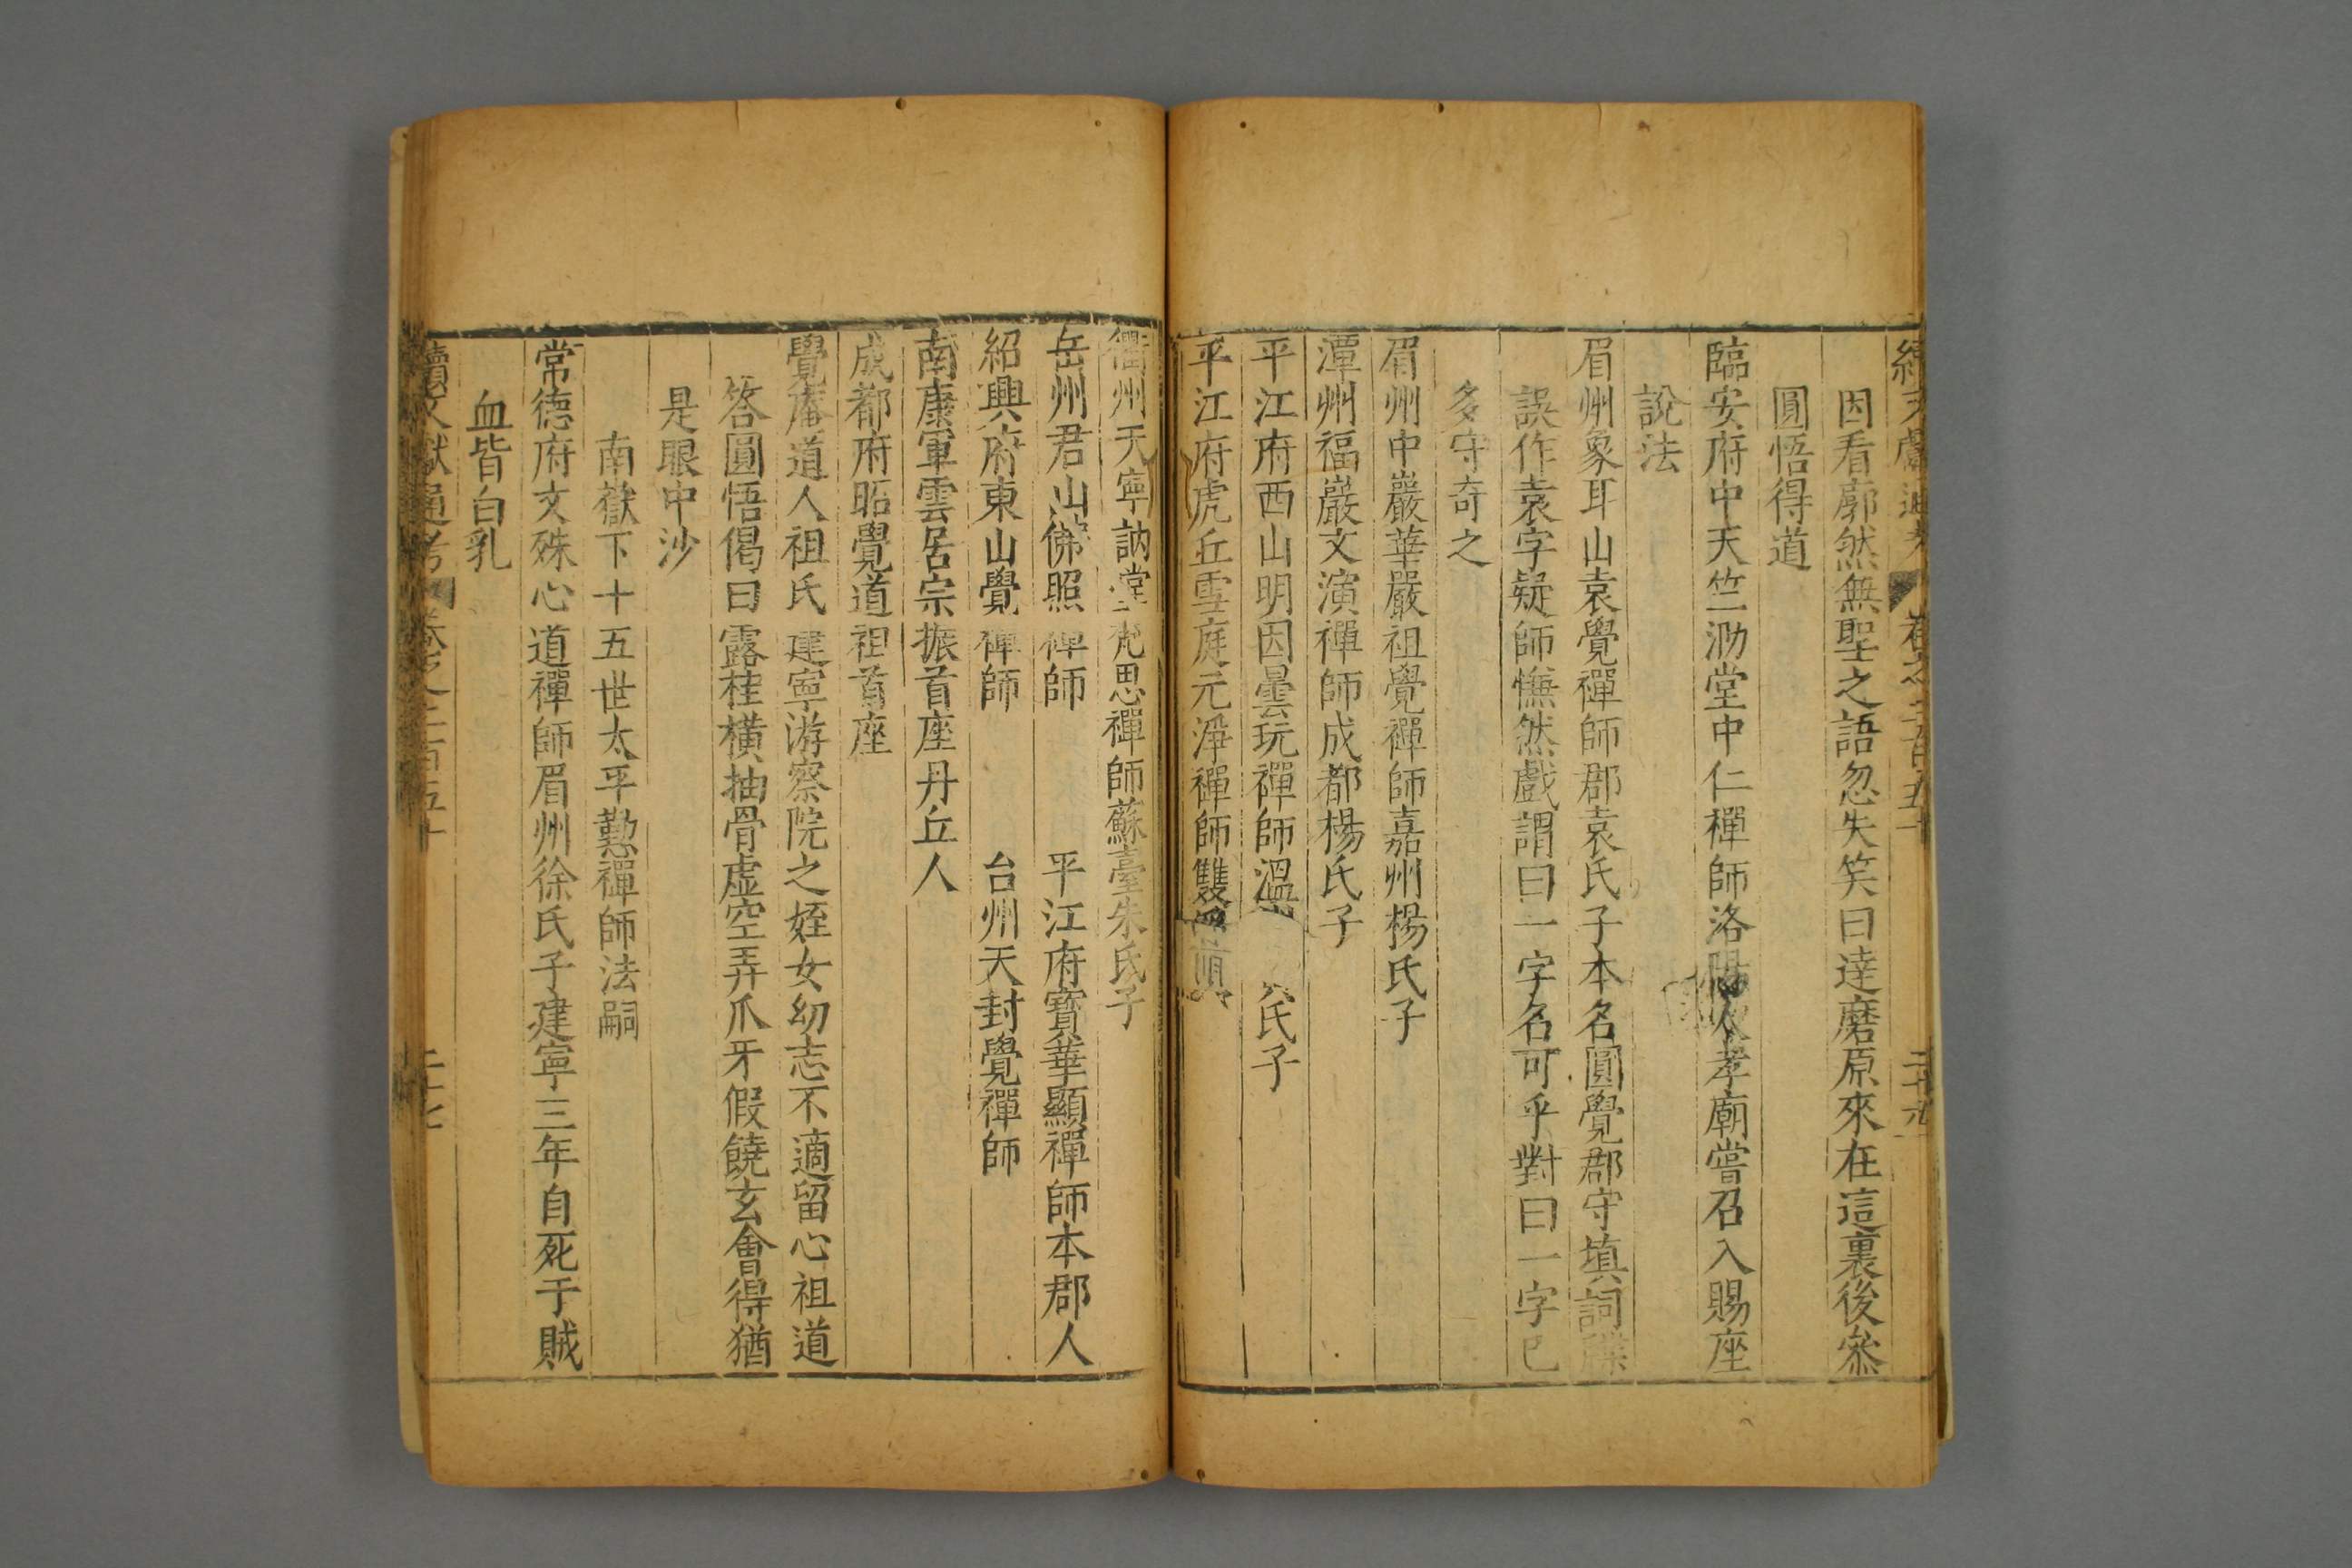 續文獻通考 卷之二百五十 二十六
因看廓然無聖之語忽失笑曰達磨原來在這裏後叅
圓悟得道
臨安府中天竺沕堂中仁禪師洛陽人孝廟嘗召入賜座
說法
眉州象耳山袁覺禪師郡袁氏子本名圓覺郡守填詞牒
誤作袁字疑師憮然戲謂曰一字名可乎對曰一字已
多守奇之
眉州中巖華嚴祖覺禪師嘉州楊氏子
潭州福巖文演禪師成都楊氏子
平江府西山明因曇玩禪師溫 氏子
平江府虎丘雪庭元淨禪師雙
衢州天寧訥堂梵思禪師蘇臺朱氏子
岳州君山佛照禪師 平江府寶華顯禪師本郡人
紹興府東山覺禪師 台州天封覺禪師
南康軍雲居宗振首座丹丘人
成都府昭覺道祖首座
覺庵道人祖氏建寧游察院之姪女幼志不適留心祖道
答圓悟偈曰露柱橫抽骨虛空弄爪牙假饒玄會得猶
是眼中沙
南嶽下十五世太平懃禪師法嗣
常德府文殊心道禪師眉州徐氏子建寧三年自死于賊
血皆白乳
續文獻通考 卷之二百五十 二十七